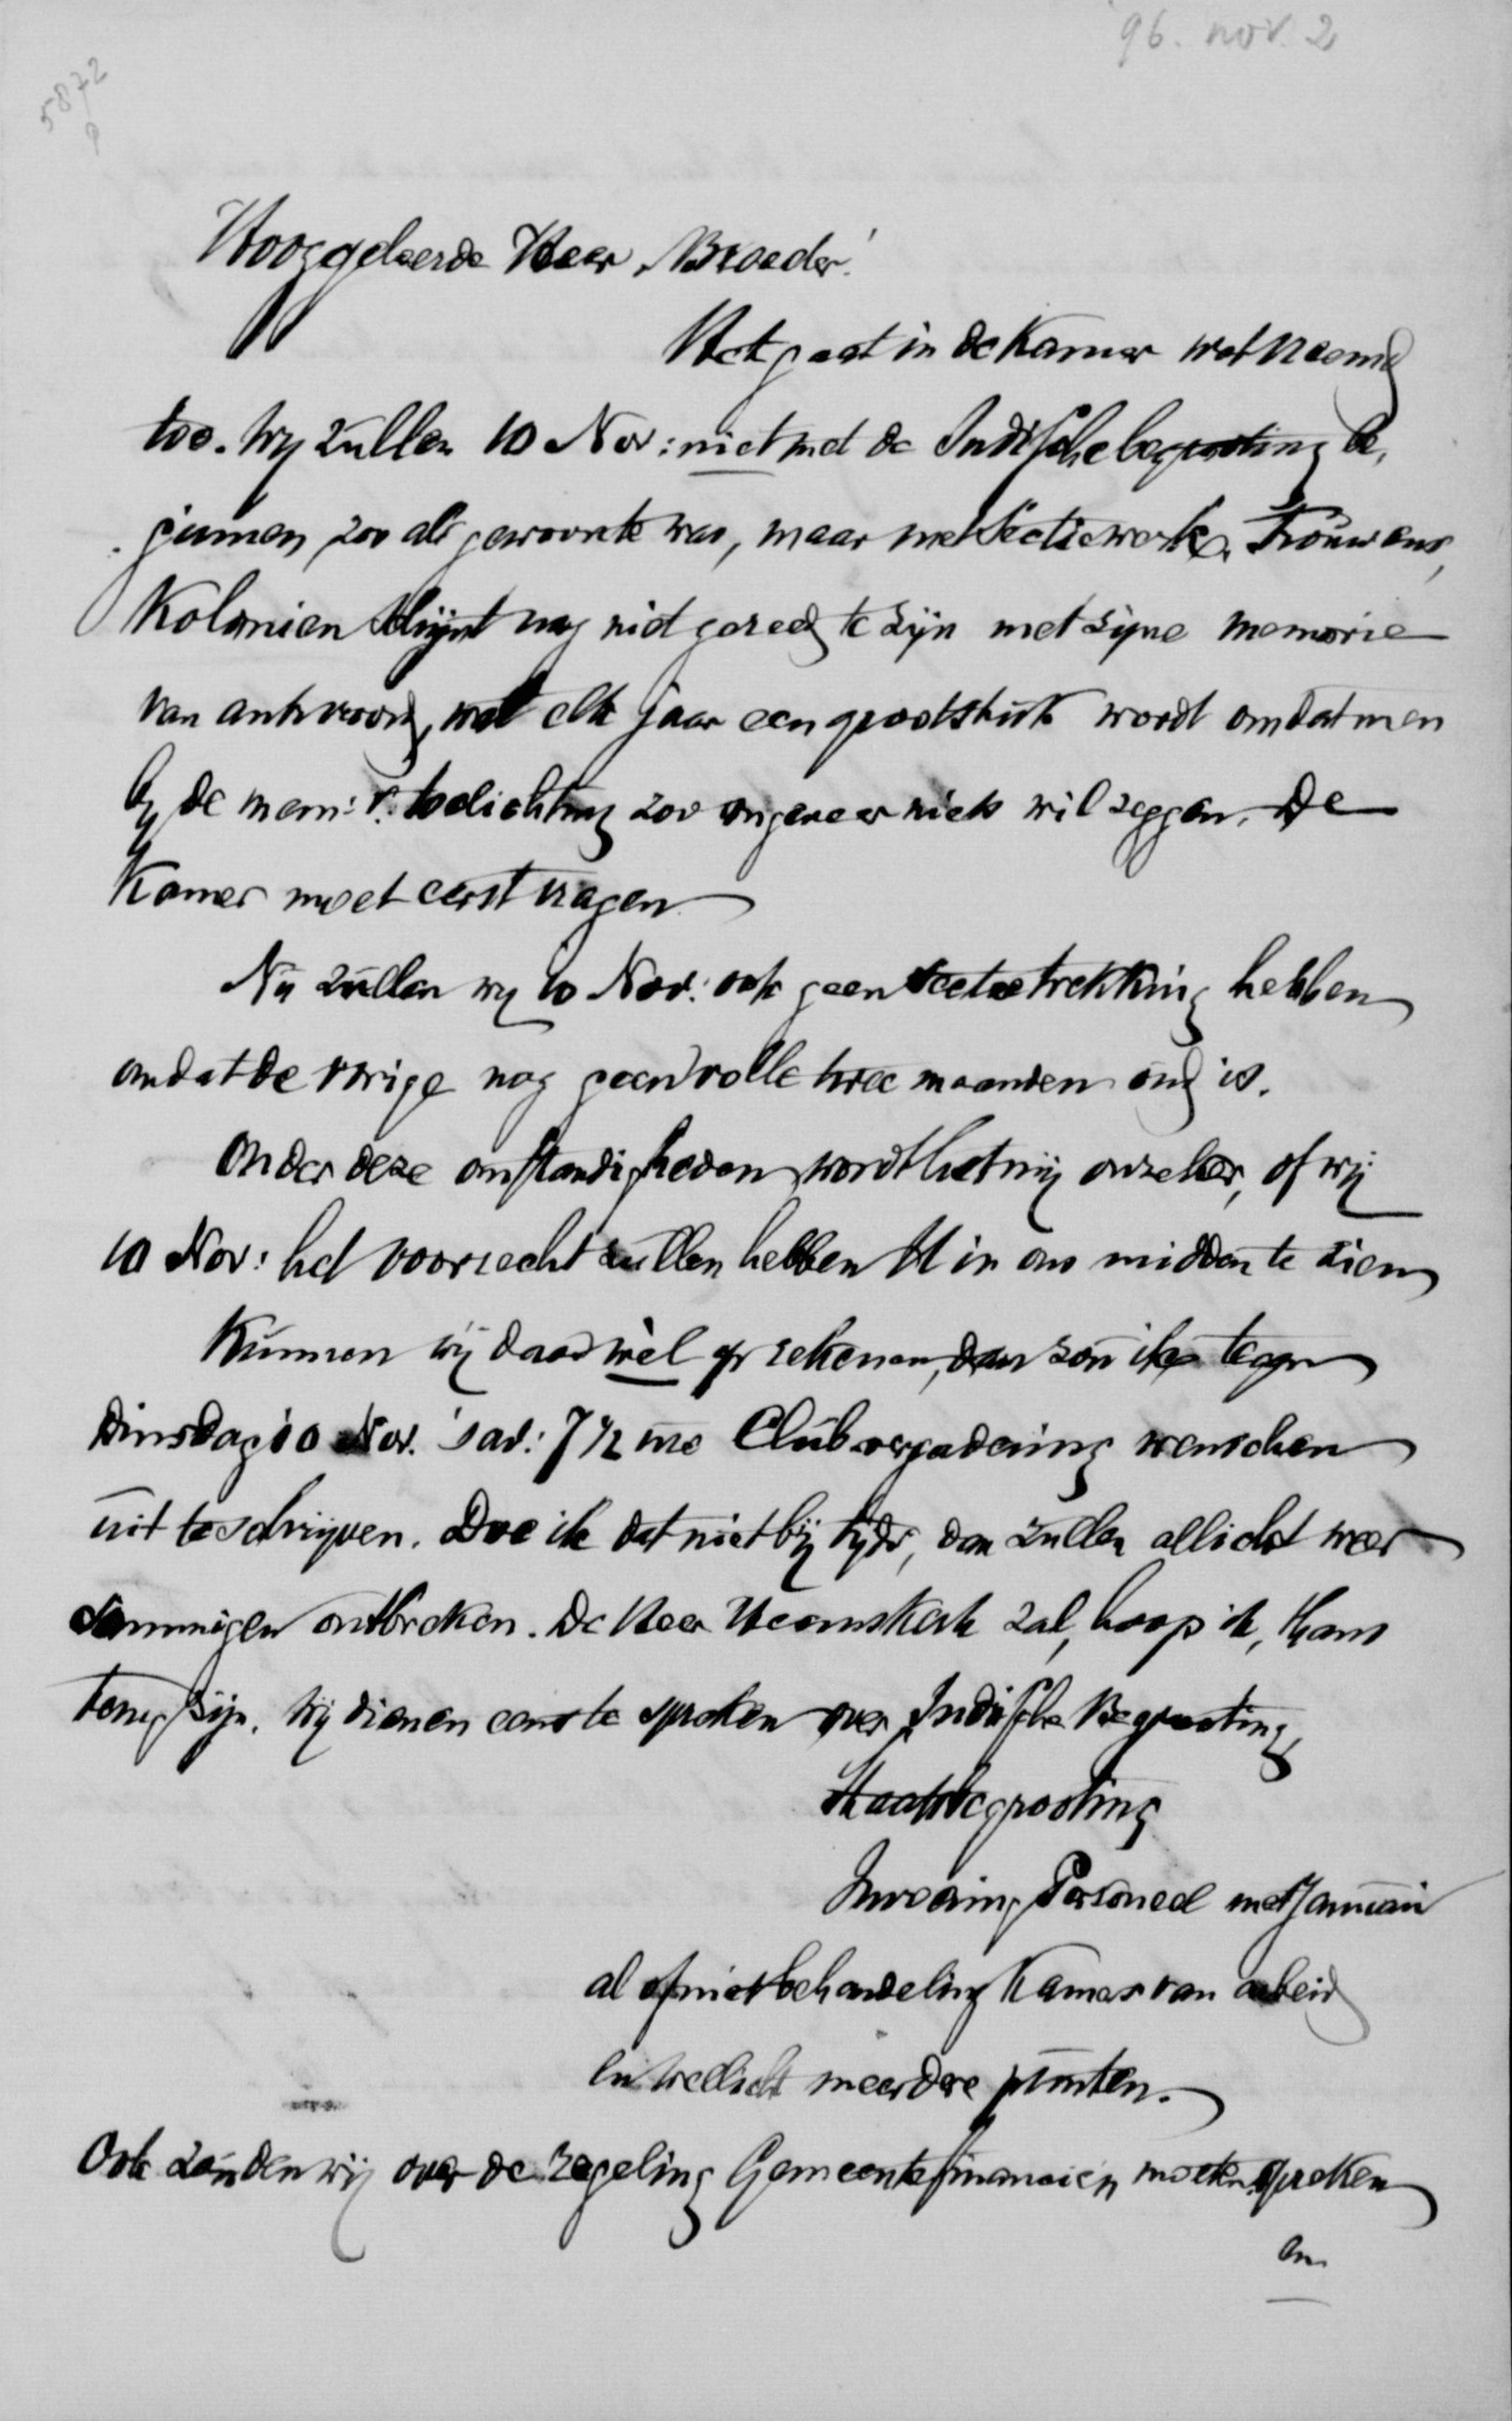 96. nov. 2
5872
Hooggeleerde Heer, Broeder!
Het gaat in de Kamer wat vreemd
toe. Wy zullen 10 Nov: niet met de Indische begrooting be,
ginnen, zoo als gewoonte was, maar met sectiewerk. Trouwens,
Koloniën schijnt nog niet gereed te zijn met zijne memorie
van antwoord, wat elk jaar een groot stuk wordt omdat men
by de mem: v. toelichting zoo ongeveer niets wil zeggen. De
Kamer moet eerst vragen
Nu zullen wy 10 Nov: ook geen sectietrekking hebben
omdat de vorige nog geen volle twee maanden oud is.
Onder deze omstandigheden wordt het mij onzeker, of wij
10 Nov: het voorrecht zullen hebben U in ons midden te zien
Kunnen wij daar wel op rekenen, dan zou ik tegen
Dinsdag 10 Nov. 's av: 7 1/2 ure Clubvergadering wenschen
uit te schrijven. Doe ik dat niet bij tijds, dan zullen allicht weer
sommigen ontbreken. De Heer Heemskerk zal, hoop ik, thans
terug zijn. Wij dienen eens te spreken over Indische Begrooting,
Staatsbegrooting
Invoering Personeel met Januari
al of niet behandeling Kamers van arbeid
en wellicht meerdere punten.
Ook zouden wij over de regeling Gemeentefinanciën moeten spreken
en